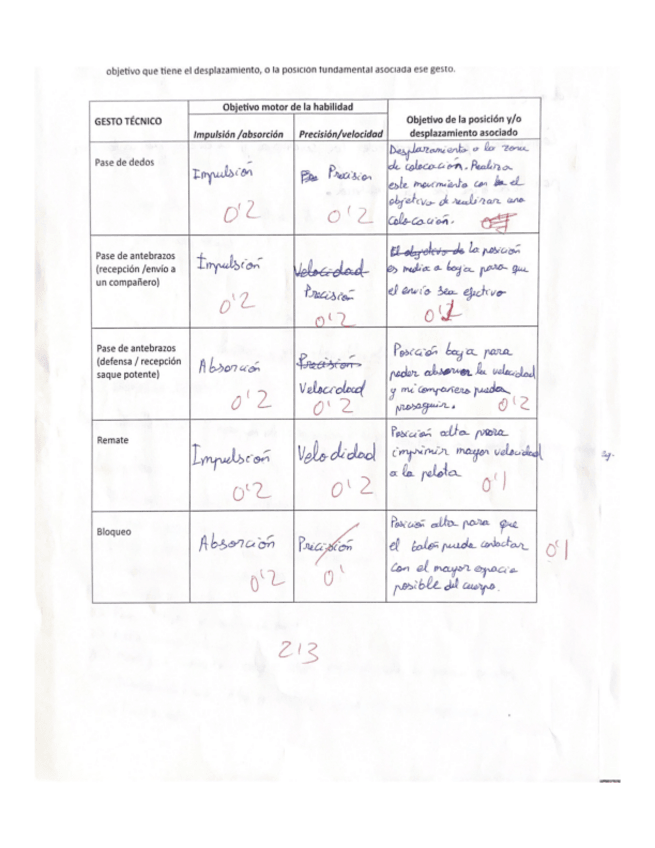 objetivo que tiene el desplazamiento, o la posición fundamental asociada ese gesto.
GESTO TÉCNICO
Objetivo motor de la habilidad
Impulsión /absorción
Precisión/velocidad
Objetivo de la posición y/o
desplazamiento asociado
Pase de dedos
Impulsión
0'2
Precision
0'2
Desplazamiento a la zona
de colocación. Realiza
este movimiento con el
objetivo de realizar una
colocación.
Pase de antebrazos
(recepción /envío a
un compañero)
Impulsión
0'2
Velocidad
Precisión
0'2
El objetivo de La posición
es media a baja para que
el envío sea efectivo
0'2
Pase de antebrazos
(defensa / recepción
saque potente)
Absorción
0'2
Precisión
Velocidad
0'2
Posición baja para
poder absorver la velocidad
y mi compañero pueda
proseguir.
0'2
Remate
Impulsión
0'2
Velodidad
0'2
Posición alta para
imprimir mayor velocidad
a la pelota
0'1
Bloqueo
Absorción
0'2
Precisión
0'
Posición alta para que
el balón pueda contactar
con el mayor espacio
posible del cuerpo.
0'1
2'3